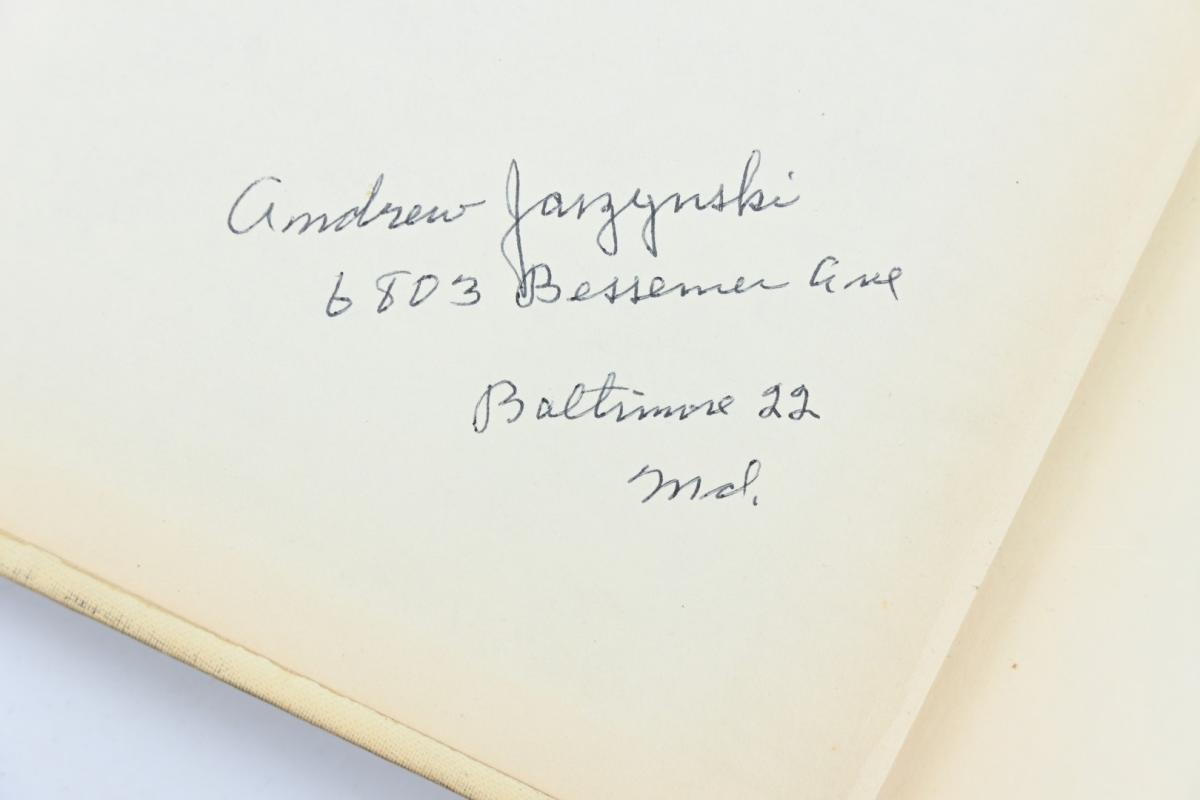 Andrew Jarzynski
6803 Bessemer Ave
Baltimore 22
Md.